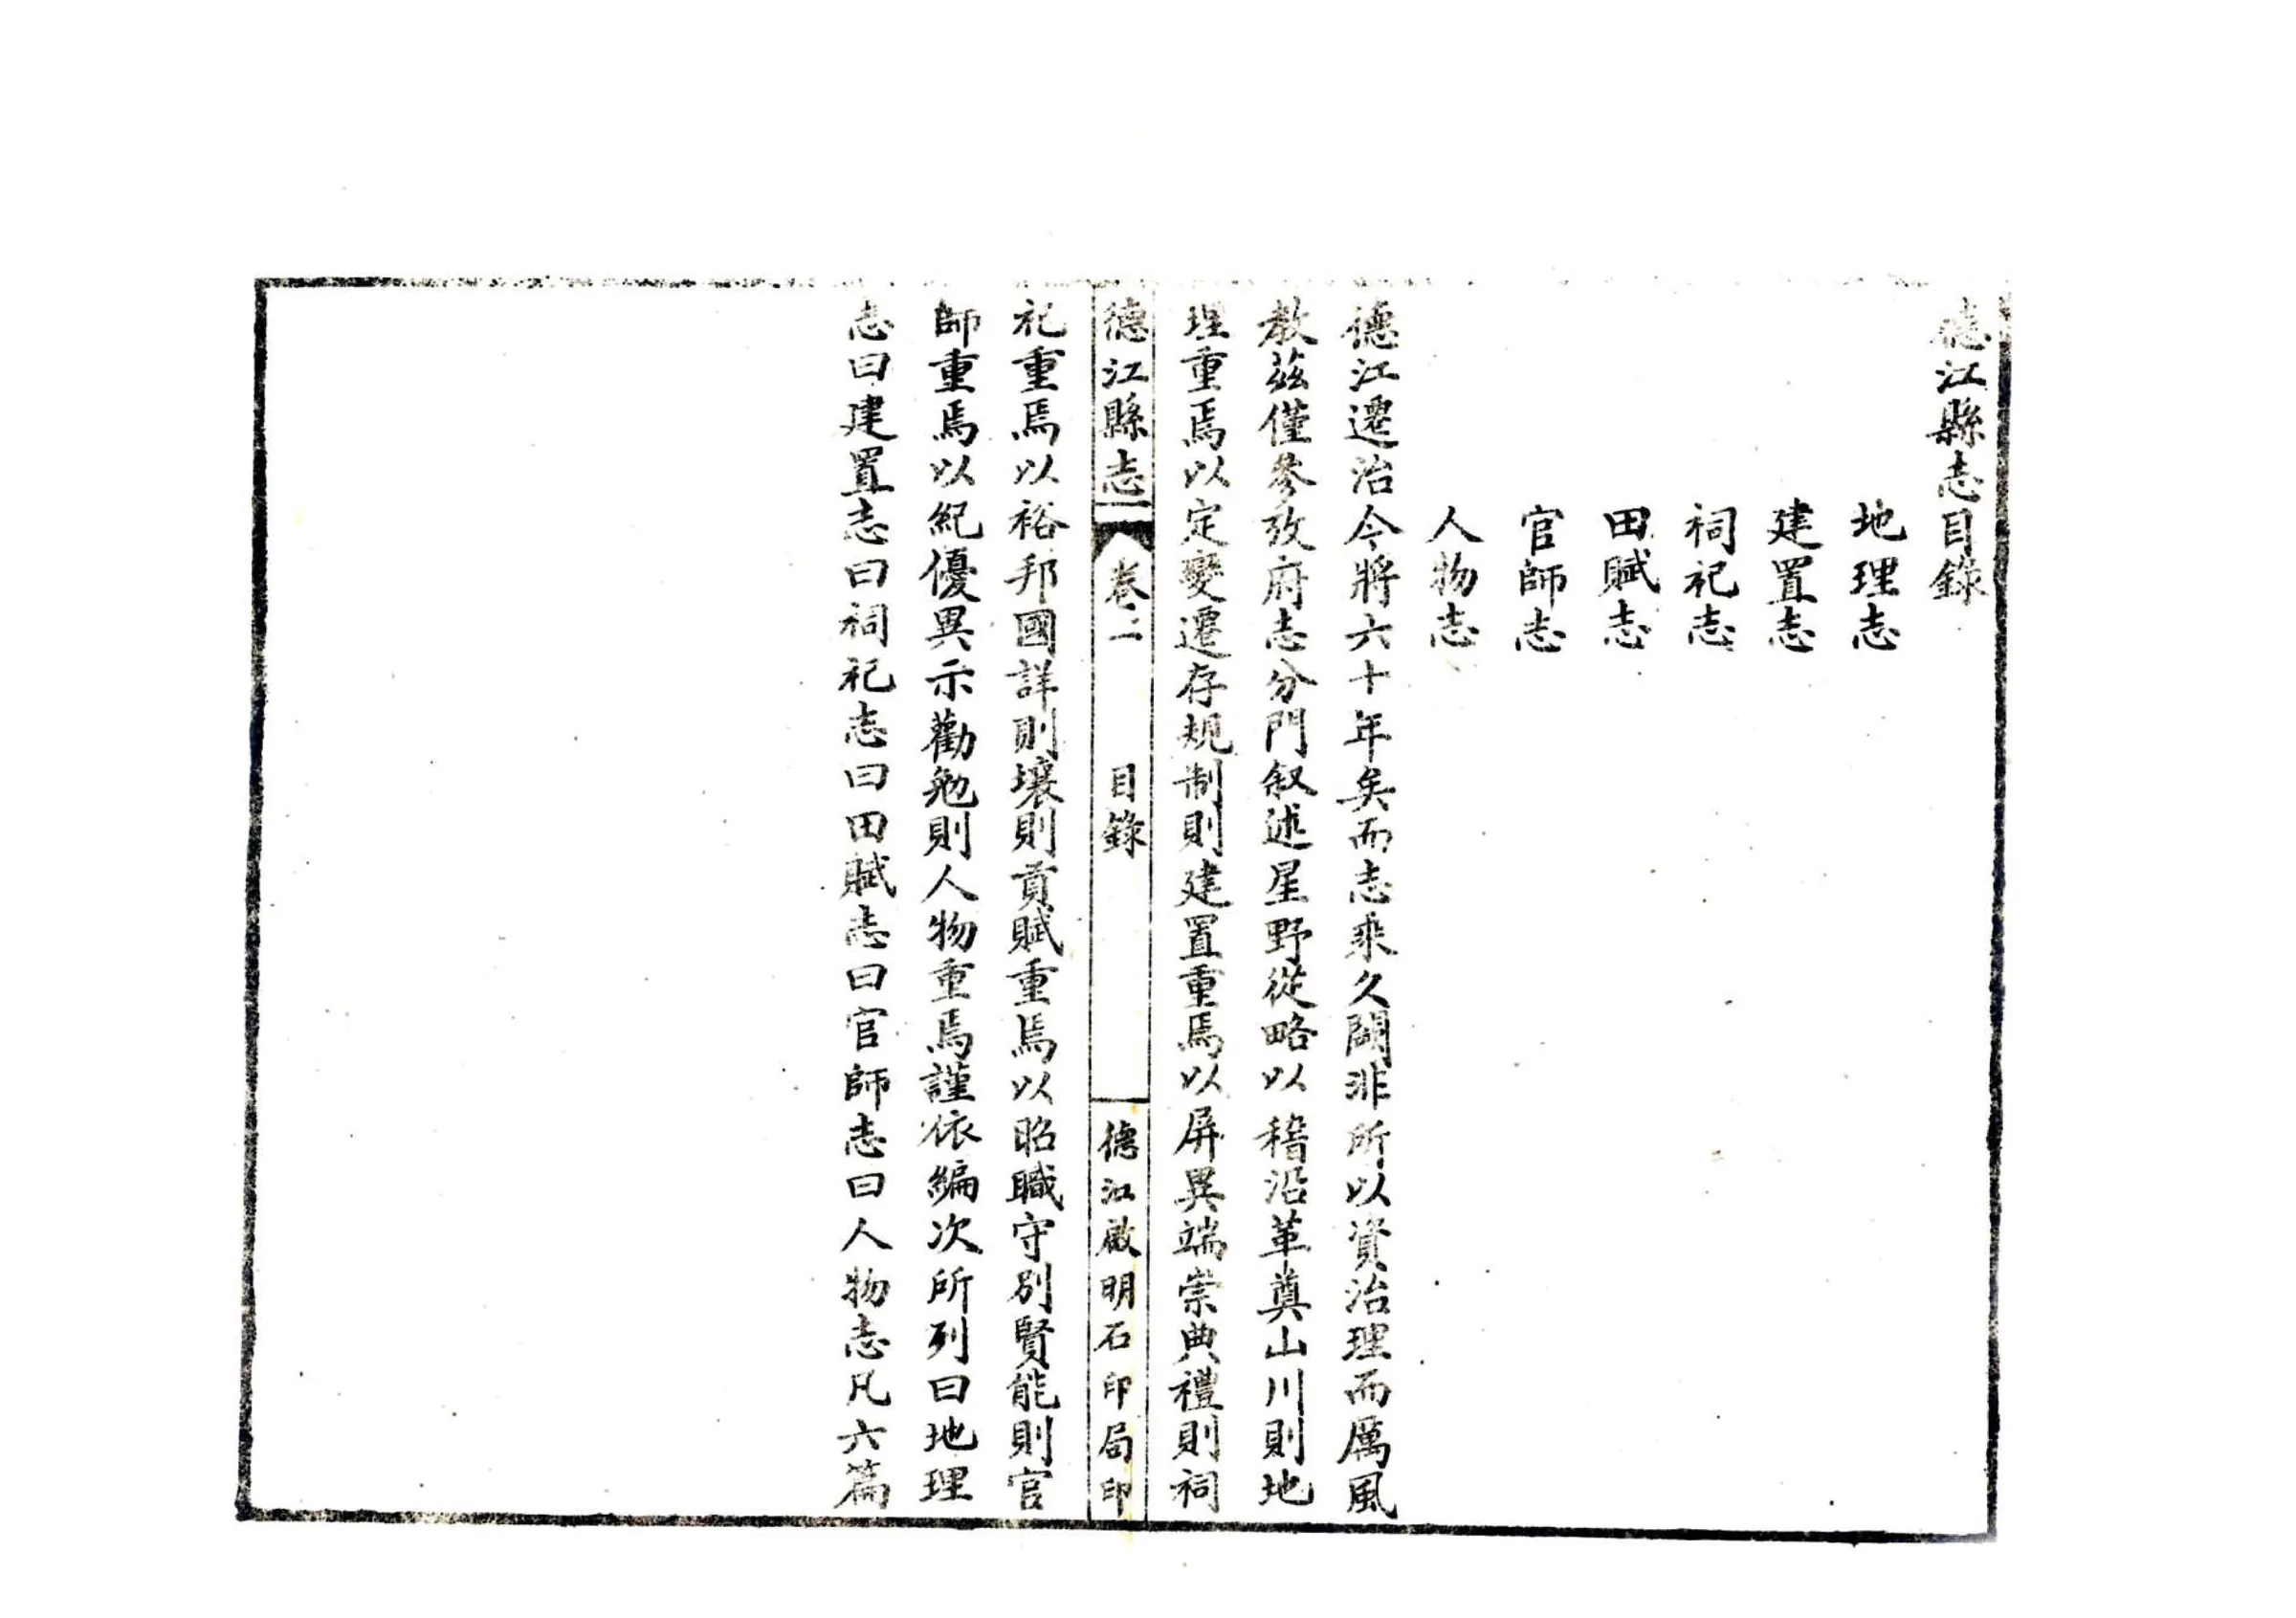 德江縣志目錄
地理志
建置志
祠祀志
田賦志
官師志
人物志
德江遷治今將六十年矣而志乘久闕非所以資治理而厲風
教茲僅參攷府志分門叙述星野從略以稽沿革奠山川則地
理重焉以定變遷存規制則建置重焉以屏異端崇典禮則祠
德江縣志 卷二 目錄 德江啟明石印局印
祀重焉以裕邦國詳則壤則貢賦重焉以昭職守別賢能則官
師重焉以紀優異示勸勉則人物重焉謹依編次所列曰地理
志曰建置志曰祠祀志曰田賦志曰官師志曰人物志凡六篇